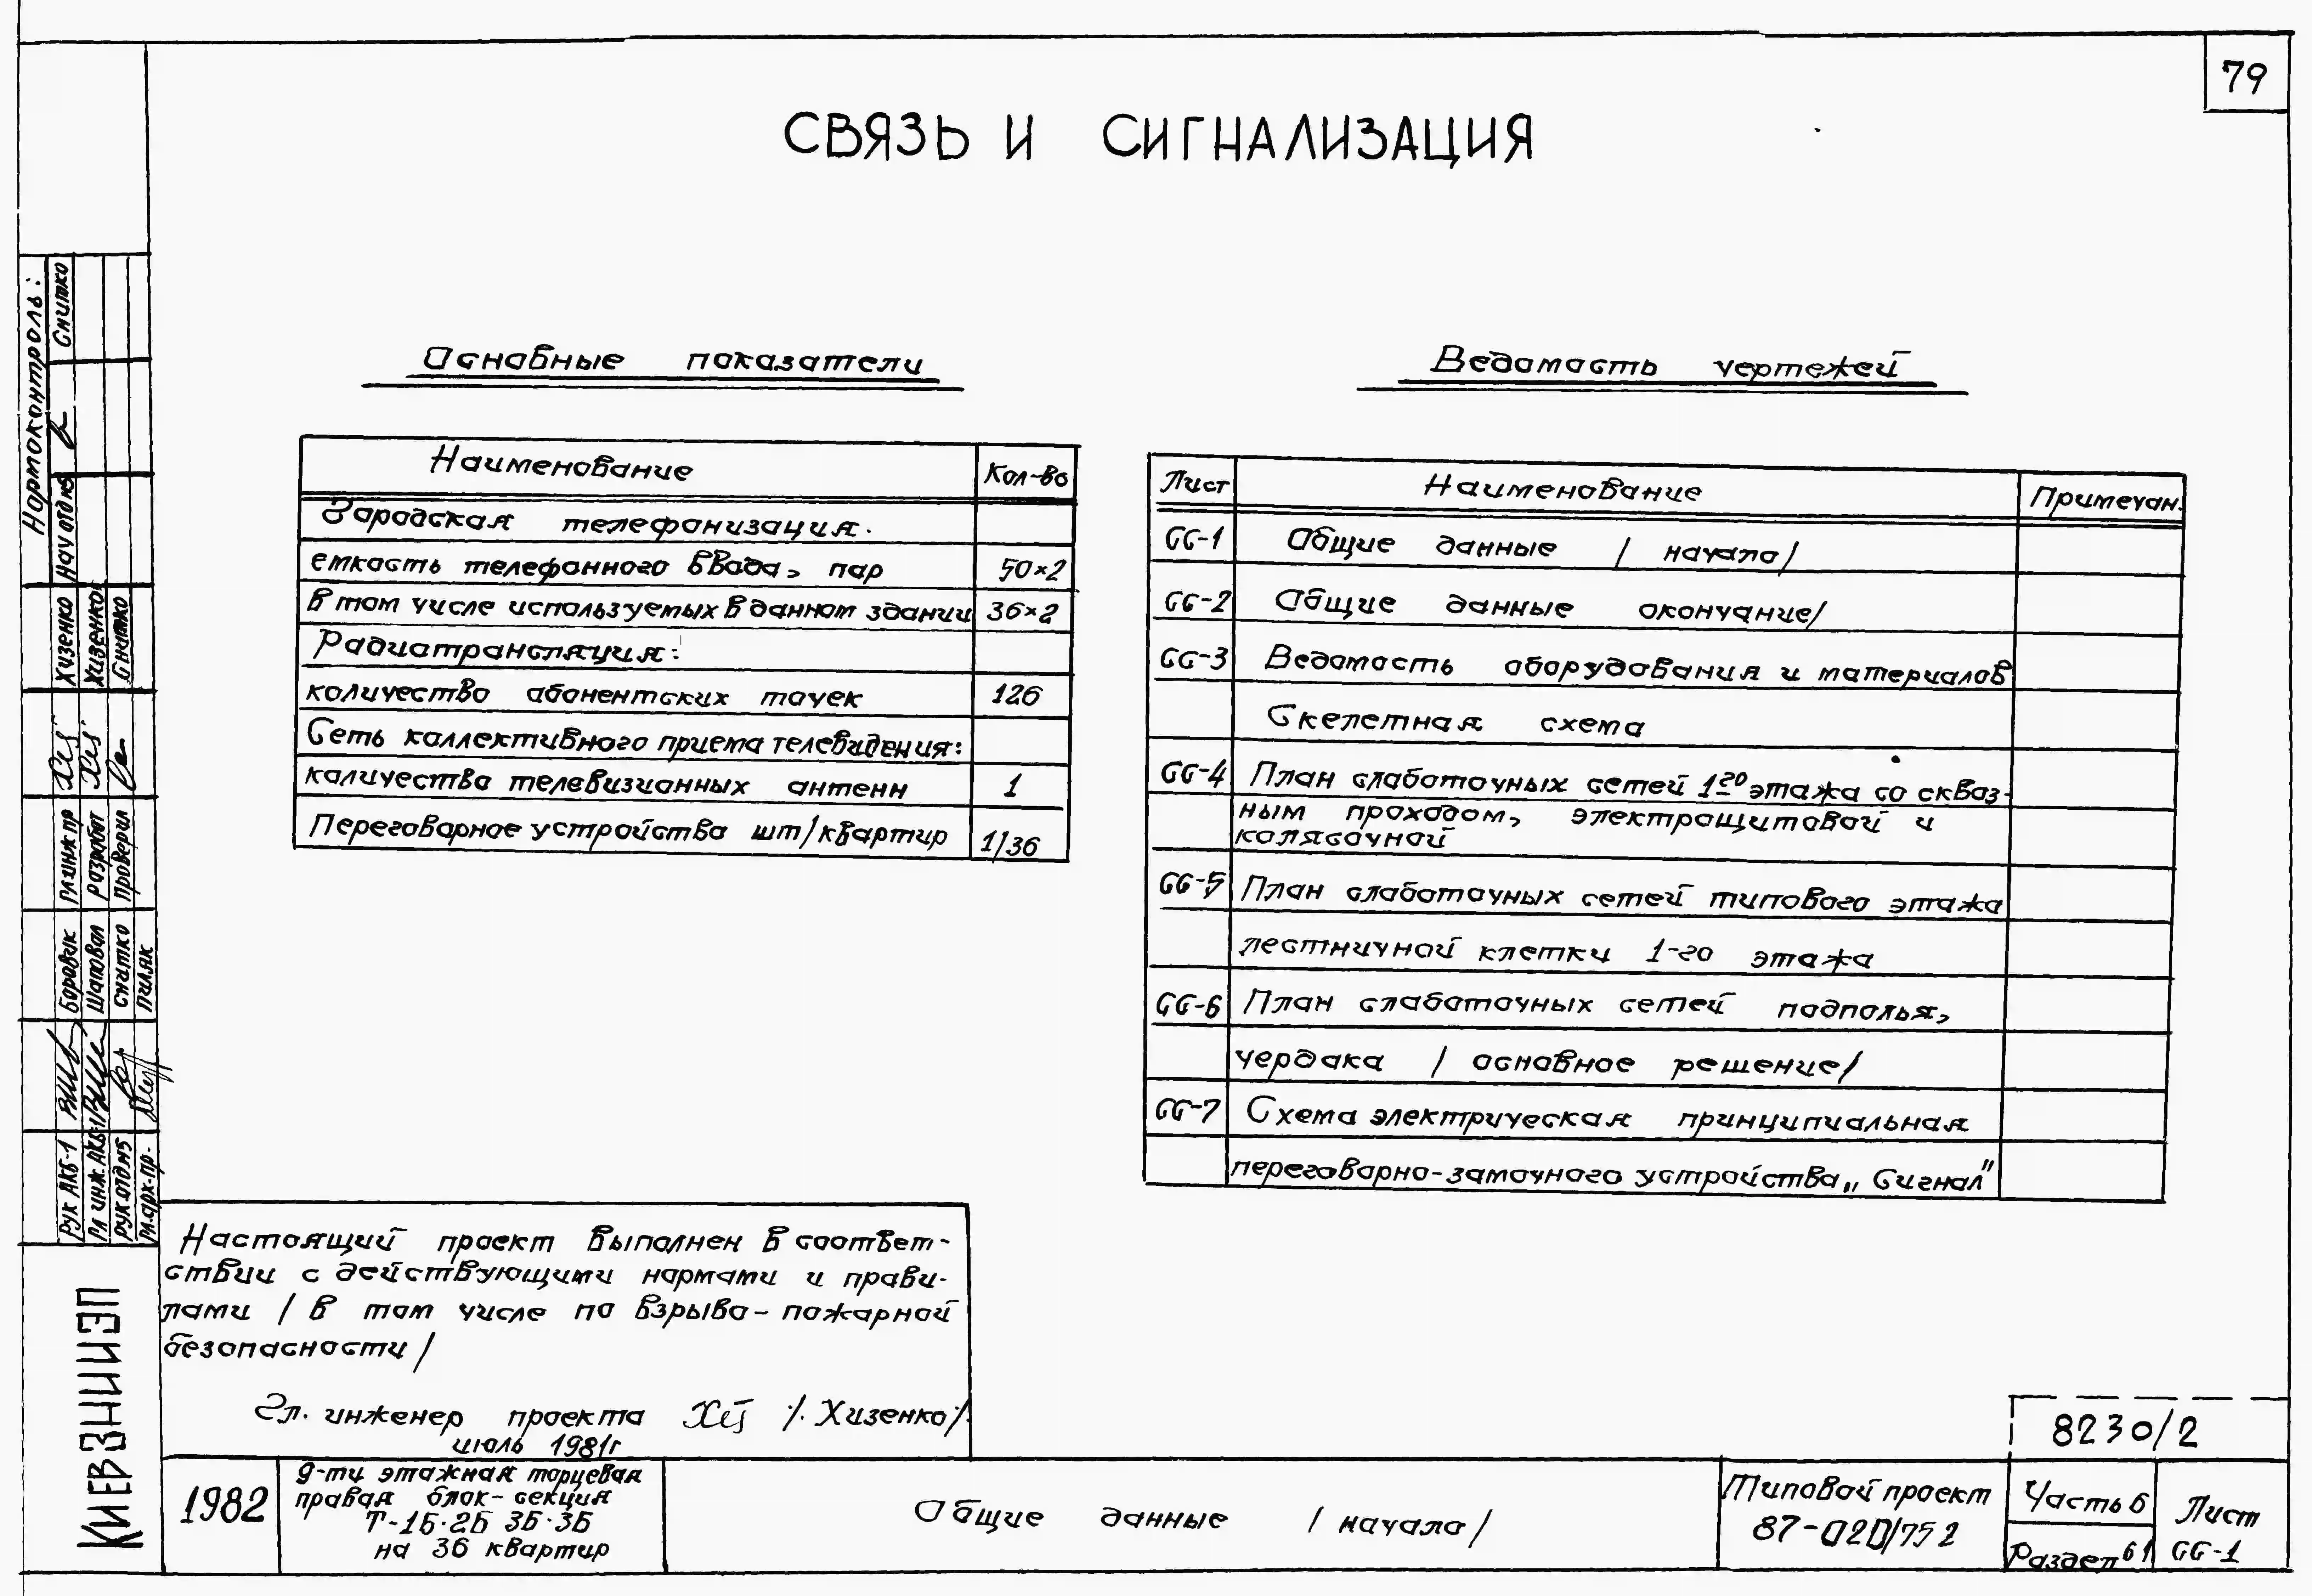 79
СВЯЗЬ И СИГНАЛИЗАЦИЯ
Основные показатели
Наименование Кол-во
Городская телефонизация:
емкость телефонного ввода, пар 50×2
в том числе используемых в данном здании 36×2
Радиотрансляция:
количество абонентских точек 126
Сеть коллективного приема телевидения:
количество телевизионных антенн 1
Переговорное устройство шт/квартир 1/36
Ведомость чертежей
Лист Наименование Примечан.
СС-1 Общие данные /начало/
СС-2 Общие данные окончание/
СС-3 Ведомость оборудования и материалов
Скелетная схема
СС-4 План слаботочных сетей 1го этажа со сквоз-
ным проходом, электрощитовой и
колясочной
СС-5 План слаботочных сетей типового этажа
лестничной клетки 1-го этажа
СС-6 План слаботочных сетей подполья,
чердака /основное решение/
СС-7 Схема электрическая принципиальная
переговорно-замочного устройства „Сигнал"
Настоящий проект выполнен в соответ-
ствии с действующими нормами и прави-
лами /в том числе по взрыво-пожарной
безопасности/
Гл. инженер проекта /Хизенко/
июль 1981г
Нормоконтроль:
Нач отд №5 Снитко
Гл инж пр Хизенко
Разработ Хизенко
Проверил Снитко
Рук АКБ-1 Боровик
Гл инж. АКБ-1 Шаповал
Рук.отд №5 Снитко
Гл.арх.пр. Пиляк
КИЕВЗНИИЭП
1982
9-ти этажная торцевая
правая блок-секция
Т-1Б·2Б 3Б·3Б
на 36 квартир
Общие данные /начало/
8230/2
Типовой проект
87-020/75 2
Часть 6
Раздел 6 1
Лист
СС-1